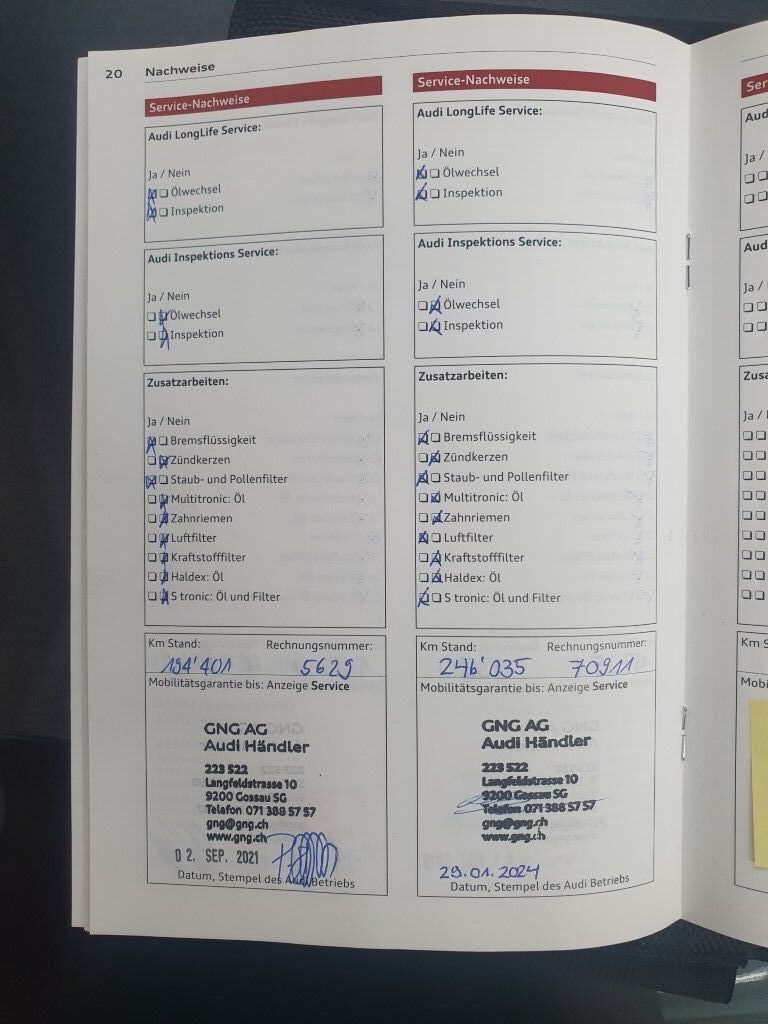 20 Nachweise
Service-Nachweise
Audi LongLife Service:
Ja / Nein
Ölwechsel
Inspektion
Audi Inspektions Service:
Ja / Nein
Ölwechsel
Inspektion
Zusatzarbeiten:
Ja / Nein
Bremsflüssigkeit
Zündkerzen
Staub- und Pollenfilter
Multitronic: Öl
Zahnriemen
Luftfilter
Kraftstofffilter
Haldex: Öl
S tronic: Öl und Filter
Km Stand: Rechnungsnummer:
194'401 5629
Mobilitätsgarantie bis: Anzeige Service
GNG AG
Audi Händler
223 522
Langfeldstrasse 10
9200 Gossau SG
Telefon 071 388 57 57
gng@gng.ch
www.gng.ch
02. SEP. 2021
Datum, Stempel des Audi Betriebs
Service-Nachweise
Audi LongLife Service:
Ja / Nein
Ölwechsel
Inspektion
Audi Inspektions Service:
Ja / Nein
Ölwechsel
Inspektion
Zusatzarbeiten:
Ja / Nein
Bremsflüssigkeit
Zündkerzen
Staub- und Pollenfilter
Multitronic: Öl
Zahnriemen
Luftfilter
Kraftstofffilter
Haldex: Öl
S tronic: Öl und Filter
Km Stand: Rechnungsnummer:
246'035 70911
Mobilitätsgarantie bis: Anzeige Service
GNG AG
Audi Händler
223 522
Langfeldstrasse 10
9200 Gossau SG
Telefon 071 388 57 57
gng@gng.ch
www.gng.ch
29.01.2024
Datum, Stempel des Audi Betriebs
Ser
Aud
Ja /
Aud
Ja /
Zusa
Ja /
Km S
Mobi